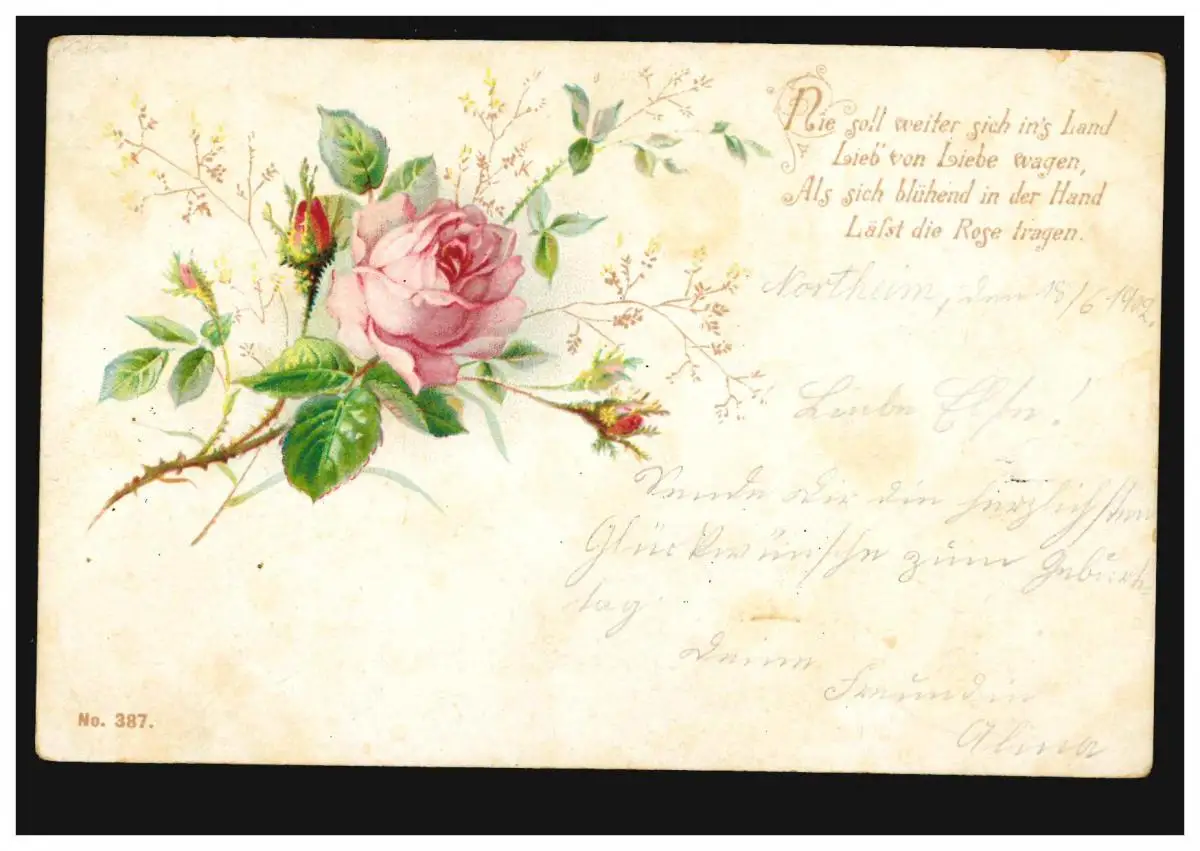 Nie soll weiter sich in's Land
Lieb' von Liebe wagen,
Als sich blühend in der Hand
Läfst die Rose tragen.
Northeim, den 18/6 1902.
Liebe Elsa!
Sende Dir die herzlichsten
Glückwünsche zum Geburts-
tag
Deine
Freundin
Alma
No. 387.